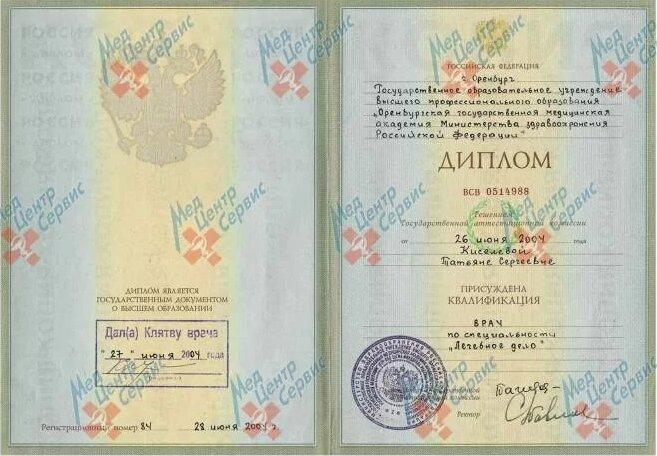 ДИПЛОМ ЯВЛЯЕТСЯ
ГОСУДАРСТВЕННЫМ ДОКУМЕНТОМ
О ВЫСШЕМ ОБРАЗОВАНИИ
Дал(а) Клятву врача
"27" июня 2004 года
Регистрационный номер 84 28 июня 2004 г.
РОССИЙСКАЯ ФЕДЕРАЦИЯ
г. Оренбург
Государственное образовательное учреждение
высшего профессионального образования
„Оренбургская государственная медицинская
академия Министерства здравоохранения
Российской Федерации"
ДИПЛОМ
ВСВ 0514988
Решением
Государственной аттестационной комиссии
от 26 июня 2004 года
Киселевой
Татьяне Сергеевне
ПРИСУЖДЕНА
КВАЛИФИКАЦИЯ
ВРАЧ
по специальности
„Лечебное дело"
Ректор
Мед Центр Сервис
Мед Центр Сервис
Мед Центр Сервис
Мед Центр Сервис
Мед Центр Сервис
Мед Центр Сервис
Мед Центр Сервис
Мед Центр Сервис